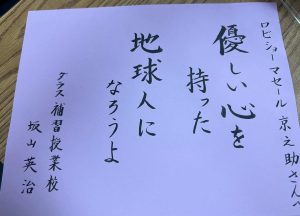 ロビショーマセール 京之助さんへ
優しい心を
持った
地球人に
なろうよ
グラス補習授業校
坂山英治